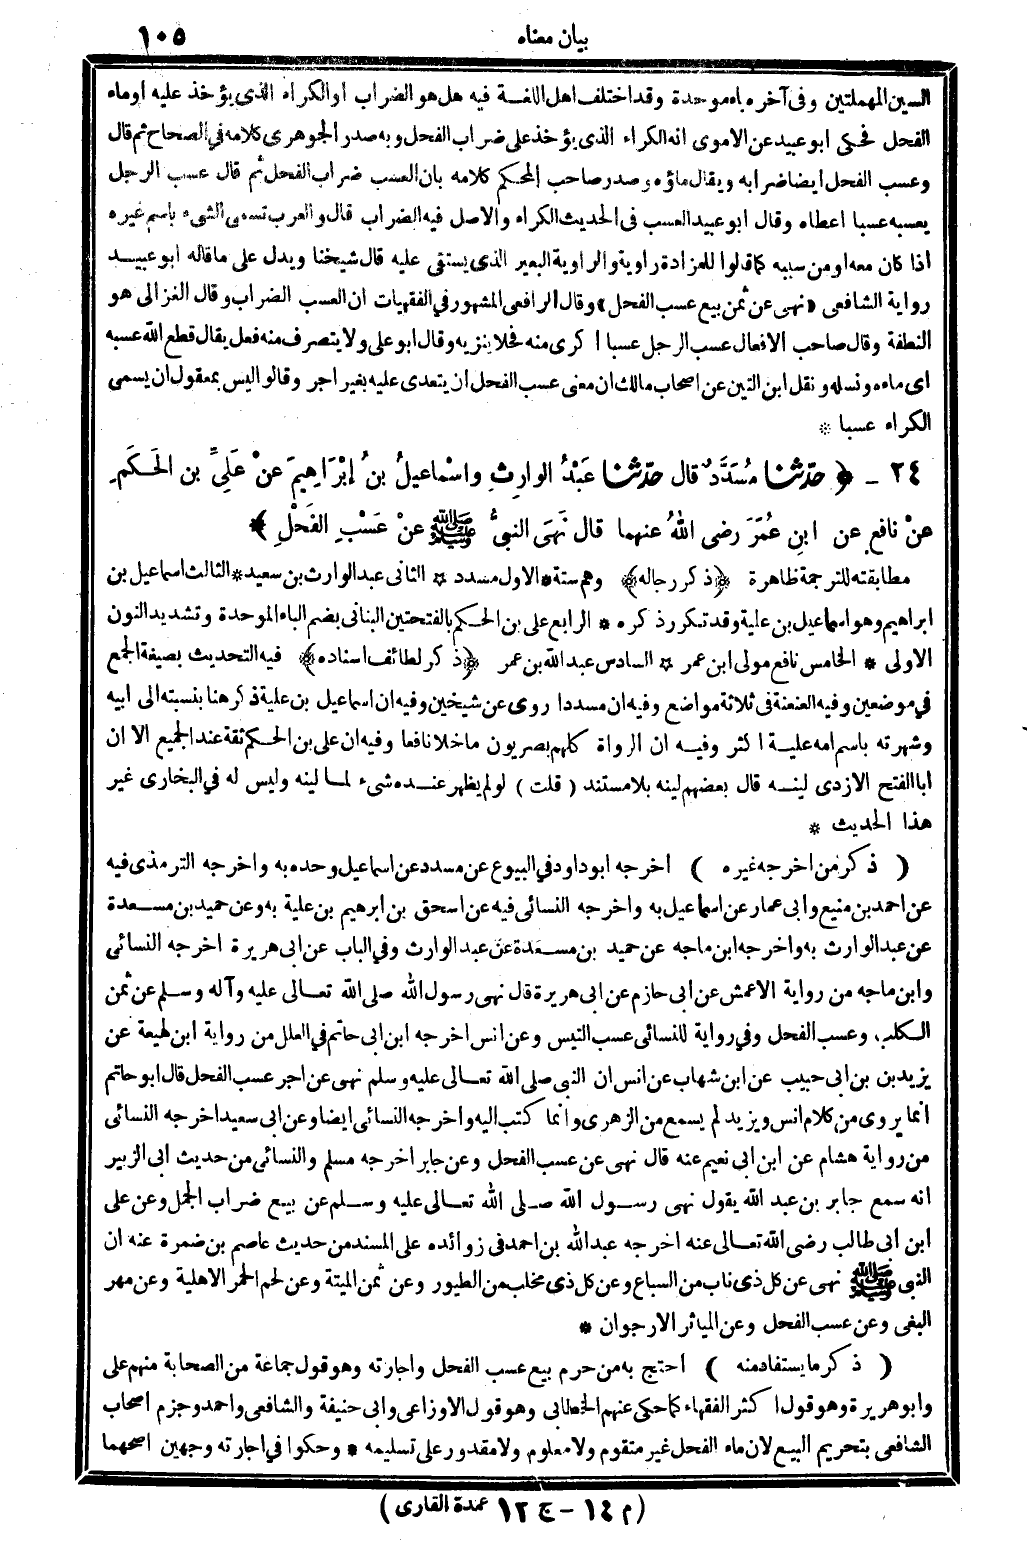 بيان معناه ١٠٥
السين المهملتين وفي آخره باء موحدة وقد اختلف اهل اللغة فيه هل هو الضراب او الكراء الذي يؤخذ عليه او ماء
الفحل فحكى ابو عبيد عن الاموى انه الكراء الذي يؤخذ على ضراب الفحل وبه صدر الجوهرى كلامه في الصحاح ثم قال
وعسب الفحل ايضا ضرابه ويقال ماؤه وصدر صاحب المحكم كلامه بان العسب ضراب الفحل ثم قال عسب الرجل
يعسبه عسبا اعطاه وقال ابو عبيد العسب في الحديث الكراء والاصل فيه الضراب قال والعرب تسمى الشيء باسم غيره
اذا كان معه او من سببه كما قالوا للمزادة راوية والراوية البعير الذي يستقى عليه قال شيخنا ويدل على ما قاله ابو عبيد
رواية الشافعى «نهى عن ثمن بيع عسب الفحل» وقال الرافعى المشهور في الفقهيات ان العسب الضراب وقال الغزالى هو
النطفة وقال صاحب الافعال عسب الرجل عسبا اكرى منه فحلا ينزيه وقال ابو على ولا يتصرف منه فعل يقال قطع الله عسبه
اى ماءه ونسله ونقل ابن التين عن اصحاب مالك ان معنى عسب الفحل ان يتعدى عليه بغير اجر وقالوا ليس بمعقول ان يسمى
الكراء عسبا *
٢٤ - ﴿ حَدَّثَنَا مُسَدَّدٌ قال حَدَّثَنَا عَبْدُ الوارِثِ واسْماعيلُ بنُ إبْرَاهِيمَ عنْ عَلِيِّ بنِ الحَكَمِ
عنْ نافِعٍ عن ابنِ عُمَرَ رضى اللهُ عنهما قال نَهَى النبيُّ ﷺ عنْ عَسْبِ الفَحْلِ ﴾
مطابقته للترجمة ظاهرة ﴿ذكر رجاله﴾ وهم ستة * الاول مسدد * الثانى عبد الوارث بن سعيد * الثالث اسماعيل بن
ابراهيم وهو اسماعيل بن علية وقد تكرر ذكره * الرابع على بن الحكم بالفتحتين البنانى بضم الباء الموحدة وتشديد النون
الاولى * الخامس نافع مولى ابن عمر * السادس عبد الله بن عمر ﴿ذكر لطائف اسناده﴾ فيه التحديث بصيغة الجمع
في موضعين وفيه العنعنة في ثلاثة مواضع وفيه ان مسددا روى عن شيخين وفيه ان اسماعيل بن علية ذكر هنا بنسبته الى ابيه
وشهرته باسم امه علية اكثر وفيه ان الرواة كلهم بصريون ما خلا نافعا وفيه ان على بن الحكم ثقة عند الجميع الا ان
ابا الفتح الازدى لينه قال بعضهم لينه بلا مستند ( قلت ) لو لم يظهر عنده شيء لما لينه وليس له في البخارى غير
هذا الحديث *
( ذكر من اخرجه غيره ) اخرجه ابو داود في البيوع عن مسدد عن اسماعيل وحده به واخرجه الترمذى فيه
عن احمد بن منيع وابى عمار عن اسماعيل به واخرجه النسائى فيه عن اسحق بن ابرهيم بن علية به وعن حميد بن مسعدة
عن عبد الوارث به واخرجه ابن ماجه عن حميد بن مسعدة عن عبد الوارث وفي الباب عن ابى هريرة اخرجه النسائى
وابن ماجه من رواية الاعمش عن ابى حازم عن ابى هريرة قال نهى رسول الله صلى الله تعالى عليه وآله وسلم عن ثمن
الكلب وعسب الفحل وفي رواية للنسائى عسب التيس وعن انس اخرجه ابن ابى حاتم في العلل من رواية ابن لهيعة عن
يزيد بن بن ابى حبيب عن ابن شهاب عن انس ان النبي صلى الله تعالى عليه وسلم نهى عن اجر عسب الفحل قال ابو حاتم
انما يروى من كلام انس ويزيد لم يسمع من الزهرى وانما كتب اليه واخرجه النسائى ايضا وعن ابى سعيد اخرجه النسائى
من رواية هشام عن ابن ابى نعيم عنه قال نهى عن عسب الفحل وعن جابر اخرجه مسلم والنسائى من حديث ابى الزبير
انه سمع جابر بن عبد الله يقول نهى رسول الله صلى الله تعالى عليه وسلم عن بيع ضراب الجمل وعن على
ابن ابى طالب رضى الله تعالى عنه اخرجه عبد الله بن احمد في زوائده على المسند من حديث عاصم بن ضمرة عنه ان
النبي ﷺ نهى عن كل ذى ناب من السباع وعن كل ذى مخلب من الطيور وعن ثمن الميتة وعن لحم الحمر الاهلية وعن مهر
البغى وعن عسب الفحل وعن المياثر الارجوان *
( ذكر ما يستفاد منه ) احتج به من حرم بيع عسب الفحل واجارته وهو قول جماعة من الصحابة منهم على
وابو هريرة وهو قول اكثر الفقهاء كما حكى عنهم الخطابى وهو قول الاوزاعى وابى حنيفة والشافعى واحمد وجزم اصحاب
الشافعى بتحريم البيع لان ماء الفحل غير متقوم ولا معلوم ولا مقدور على تسليمه * وحكوا في اجارته وجهين اصحهما
(م ١٤ - ج ١٢ عمدة القارى)